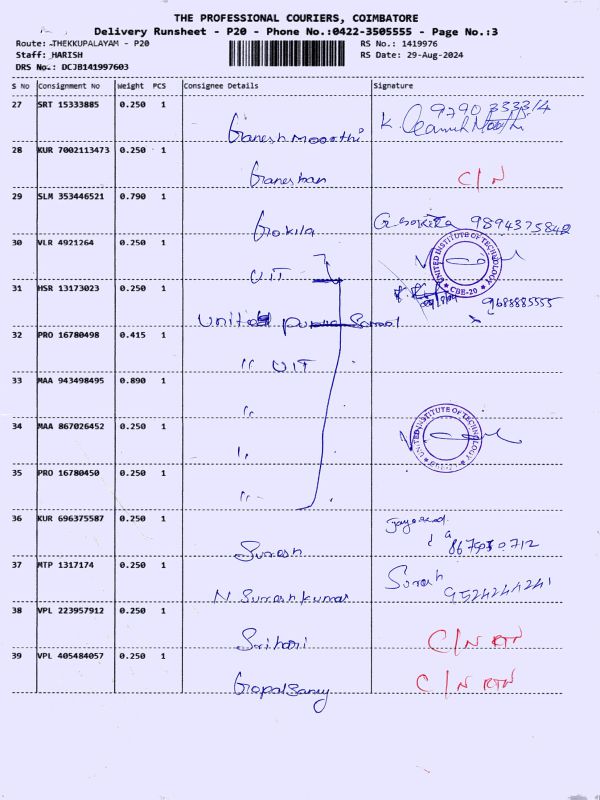 THE PROFESSIONAL COURIERS, COIMBATORE
Delivery Runsheet - P20 - Phone No.:0422-3505555 - Page No.:3
Route: THEKKUPALAYAM - P20
RS No.: 1419976
Staff: HARISH
RS Date: 29-Aug-2024
DRS No.: DCJB141997603
S No Consignment No Weight PCS Consignee Details Signature
27 SRT 15333885 0.250 1
Ganesh Moorthi K. 9790333314
28 KUR 7002113473 0.250 1
Ganeshan C/N
29 SLM 353446521 0.790 1
Gokila G. Gokila 9894375842
30 VLR 4921264 0.250 1
UIT UNITED INSTITUTE OF TECHNOLOGY * CBE-20 *
31 HSR 13173023 0.250 1 9688885555
United Public School
32 PRO 16780498 0.415 1
" UIT
33 MAA 943498495 0.890 1
"
34 MAA 867026452 0.250 1
" UNITED INSTITUTE OF TECHNOLOGY * CBE-20 *
35 PRO 16780450 0.250 1
"
36 KUR 696375587 0.250 1
Suresh
37 MTP 1317174 0.250 1 Suresh
N. Sureshkumar 9524244241
38 VPL 223957912 0.250 1
Srihari C/N RTN
39 VPL 405484057 0.250 1
Gopalsamy C/N RTN